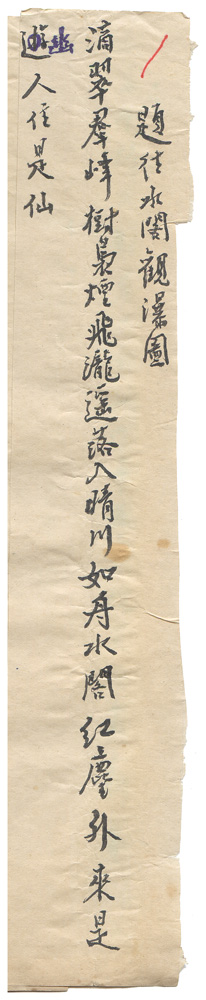 題水閣觀瀑圖
滴翠羣峰樹裊煙飛瀧遥落入晴川如舟水閣紅塵外來是
遊人住是仙